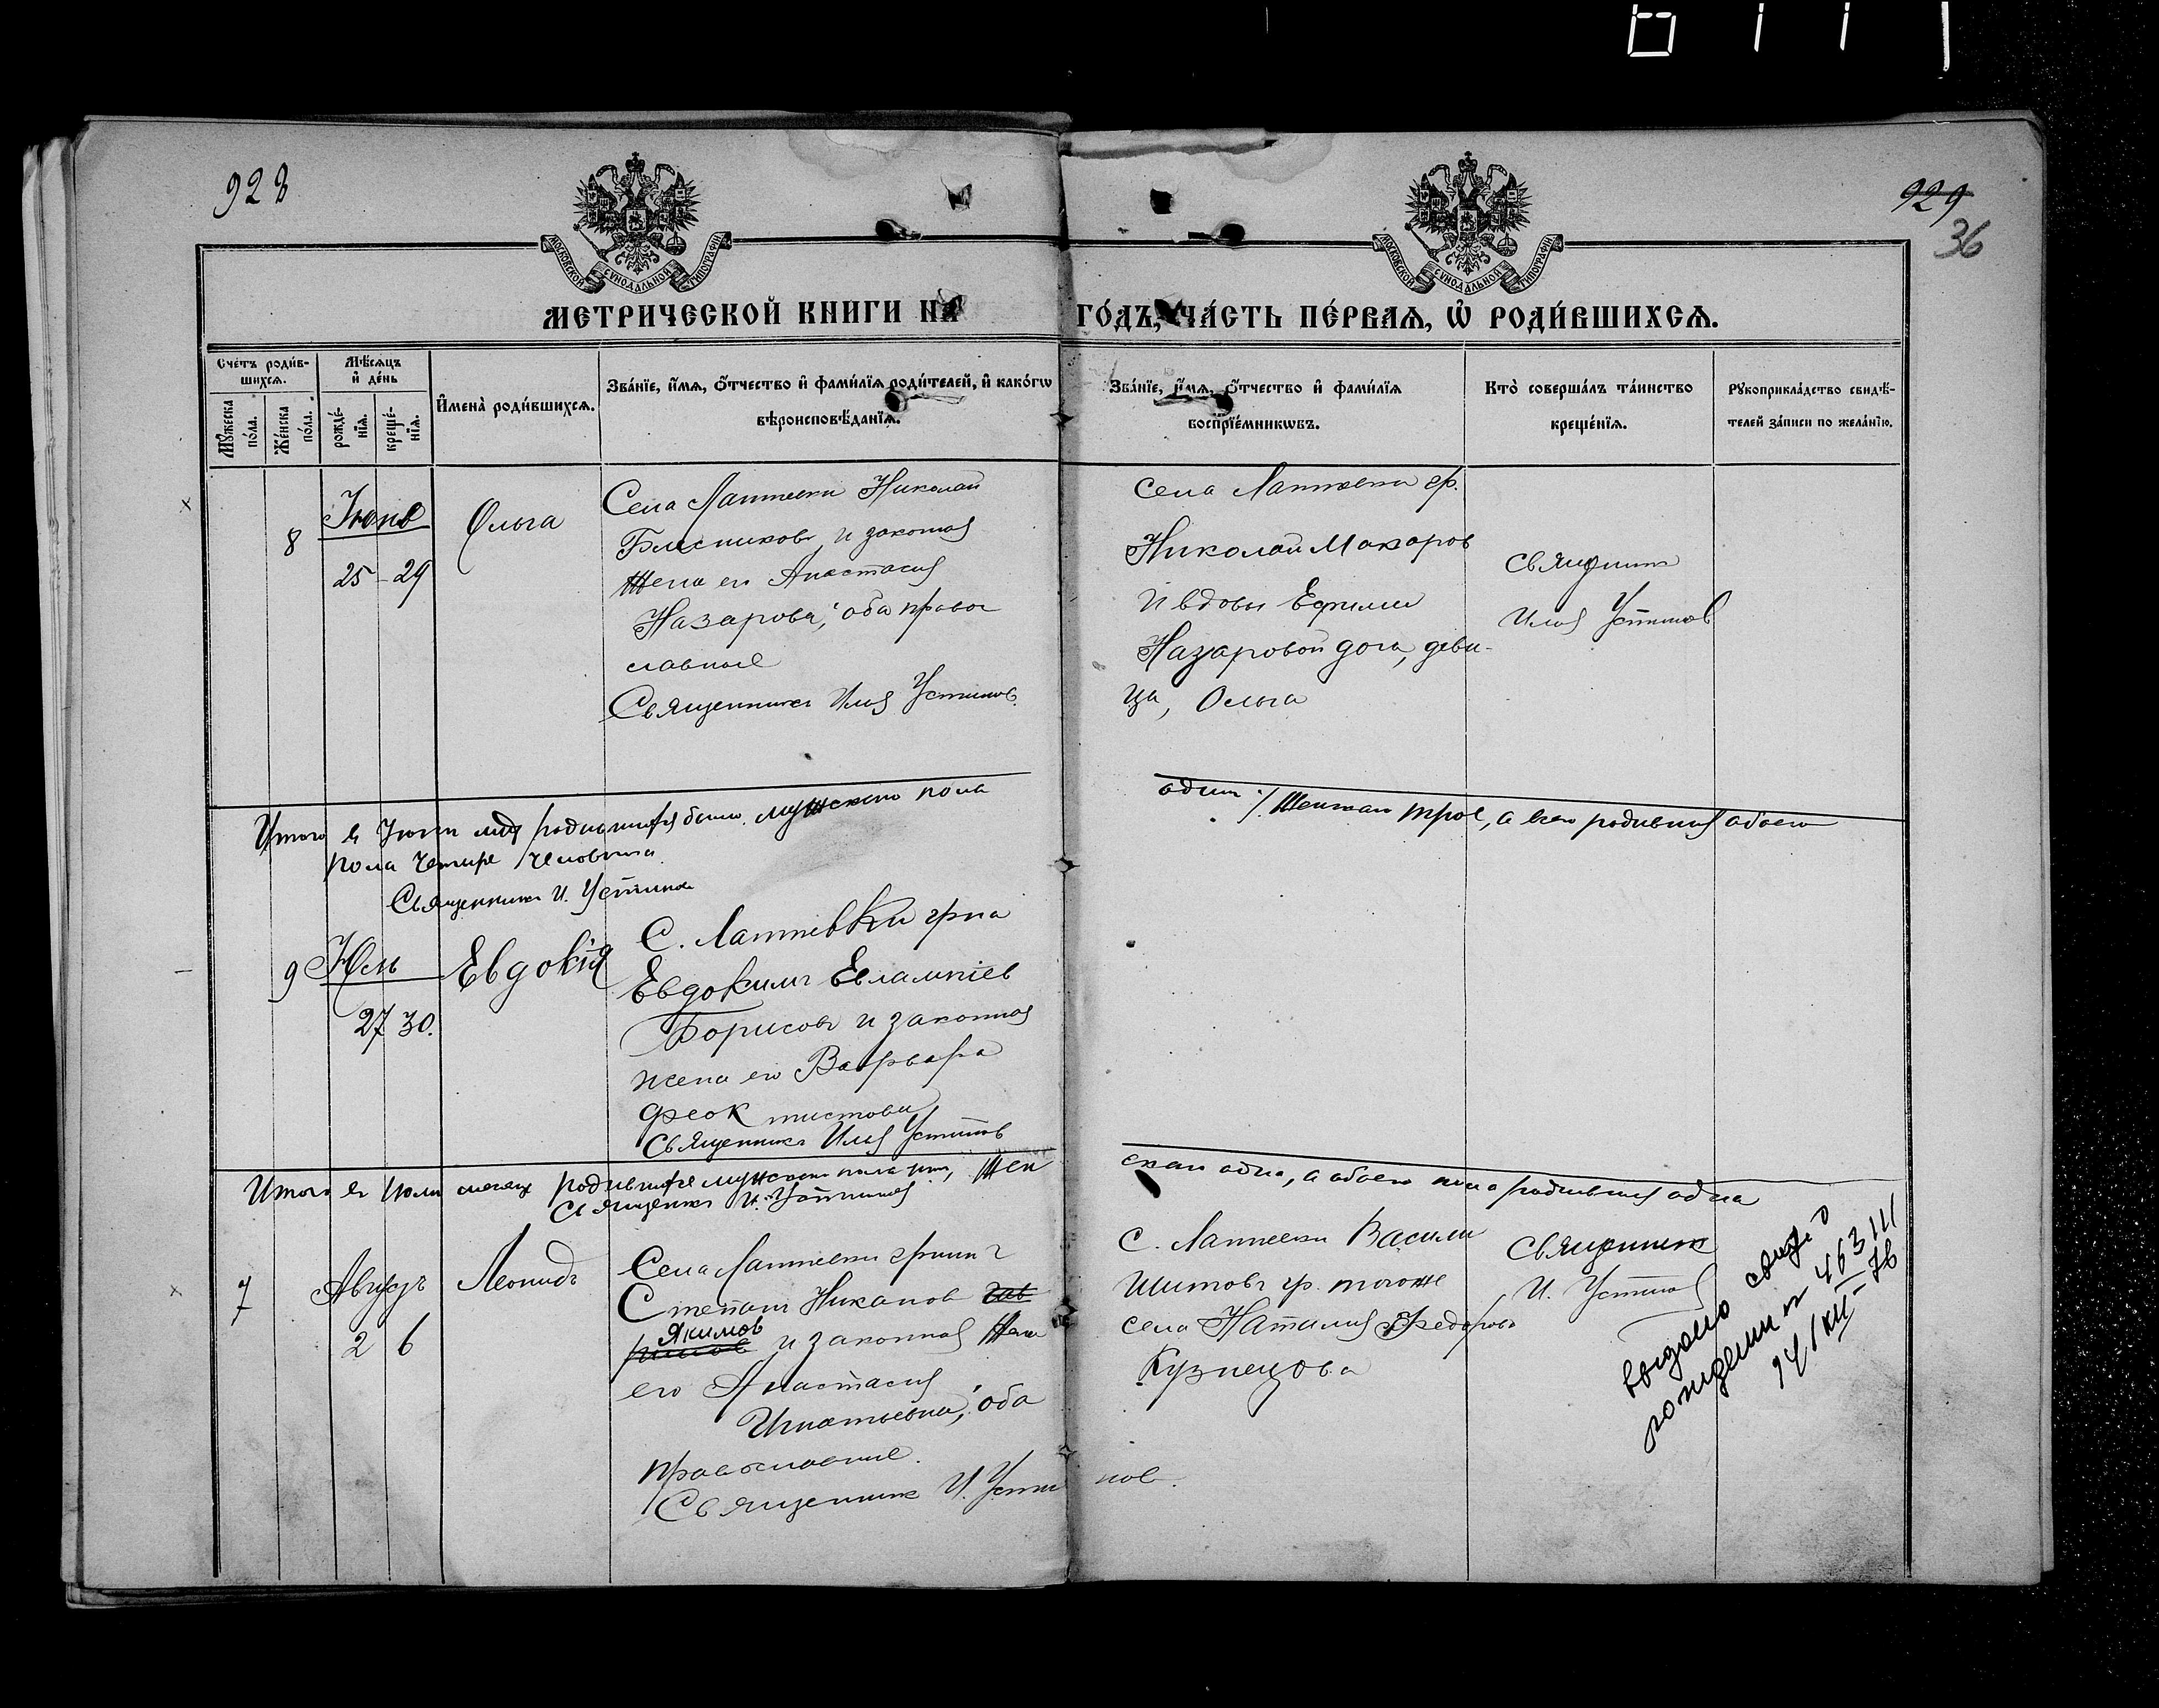 928
929
36
МОСКОВСКОЙ СУНОДАЛЬНОЙ ТИПОГРАФІИ
МОСКОВСКОЙ СУНОДАЛЬНОЙ ТИПОГРАФІИ
МЕТРИЧЕСКОЙ КНИГИ НА ГО́ДЪ, ЧА́СТЬ ПЕ́РВАѦ, Ѡ҆ РОДИ́ВШИХСѦ.
Сче́тъ роди́в-
шихсѧ.
Мꙋ́жеска
по́ла.
Же́нска
по́ла.
Мѣ́сѧцъ
и҆ де́нь
рожде́-
нїѧ.
креще́-
нїѧ.
И҆мена̀ роди́вшихсѧ.
Зва́нїе, и҆́мѧ, ѻ҆́тчество и҆ фами́лїѧ роди́телей, и҆ како́гѡ
вѣроисповѣ́данїѧ.
Зва́нїе, и҆́мѧ, ѻ҆́тчество и҆ фами́лїѧ
воспрїе́мникѡвъ.
Кто̀ соверша́лъ та́инство
креще́нїѧ.
Рꙋкоприкла́дство свидѣ́-
телей за́писи по жела́нїю.
8
Іюнь
25 - 29
Ольга
Села Лаптевки Николай
и законная
жена его Анастасия
Назарова; оба право
славные
Священникъ Илия Устинов.
Села Лаптевки гр.
Николай Макаров
и вдовы Ефимии
Назаровой дочь, деви-
ца, Ольга
Священник
Илия Устинов
Итого в Июне родившихся было мужского пола
один; Женскаго трое, а всего родившихся обоего
пола Четыре человека
Священникъ И. Устинов
9
Июль
27 30.
Евдокія
С. Лаптевки гр-на
Евдокимъ Евлампіев
Борисовъ и законная
жена его Варвара
Феоктистова
Священникъ Илия Устинов
Итого в Июле месяце родившихся мужского пола нет, Жен
скаго одна, а обоего пола родившихся одна
Священник И. Устинов
7
Август
2 6
Леонидъ
Села Лаптевки гр-нин
Степанъ Никанов
Якимов
и законная жена
его Анастасия
Игнатьевна; оба
православные.
Священник И. Устинов.
С. Лаптевки Василий
Шитовъ гр. тогоже
села Наталия Федорова
Кузнецова
Священник
И. Устинов
выдано свид. о
рождении № 463111